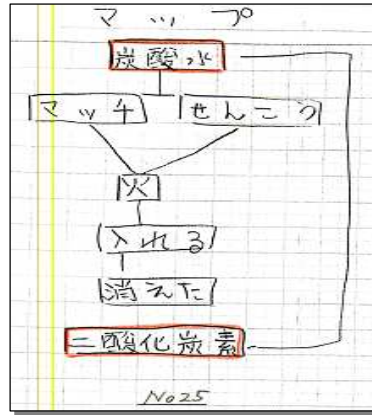 マップ
炭酸水
マッチ せんこう
火
入れる
消えた
二酸化炭素
No25